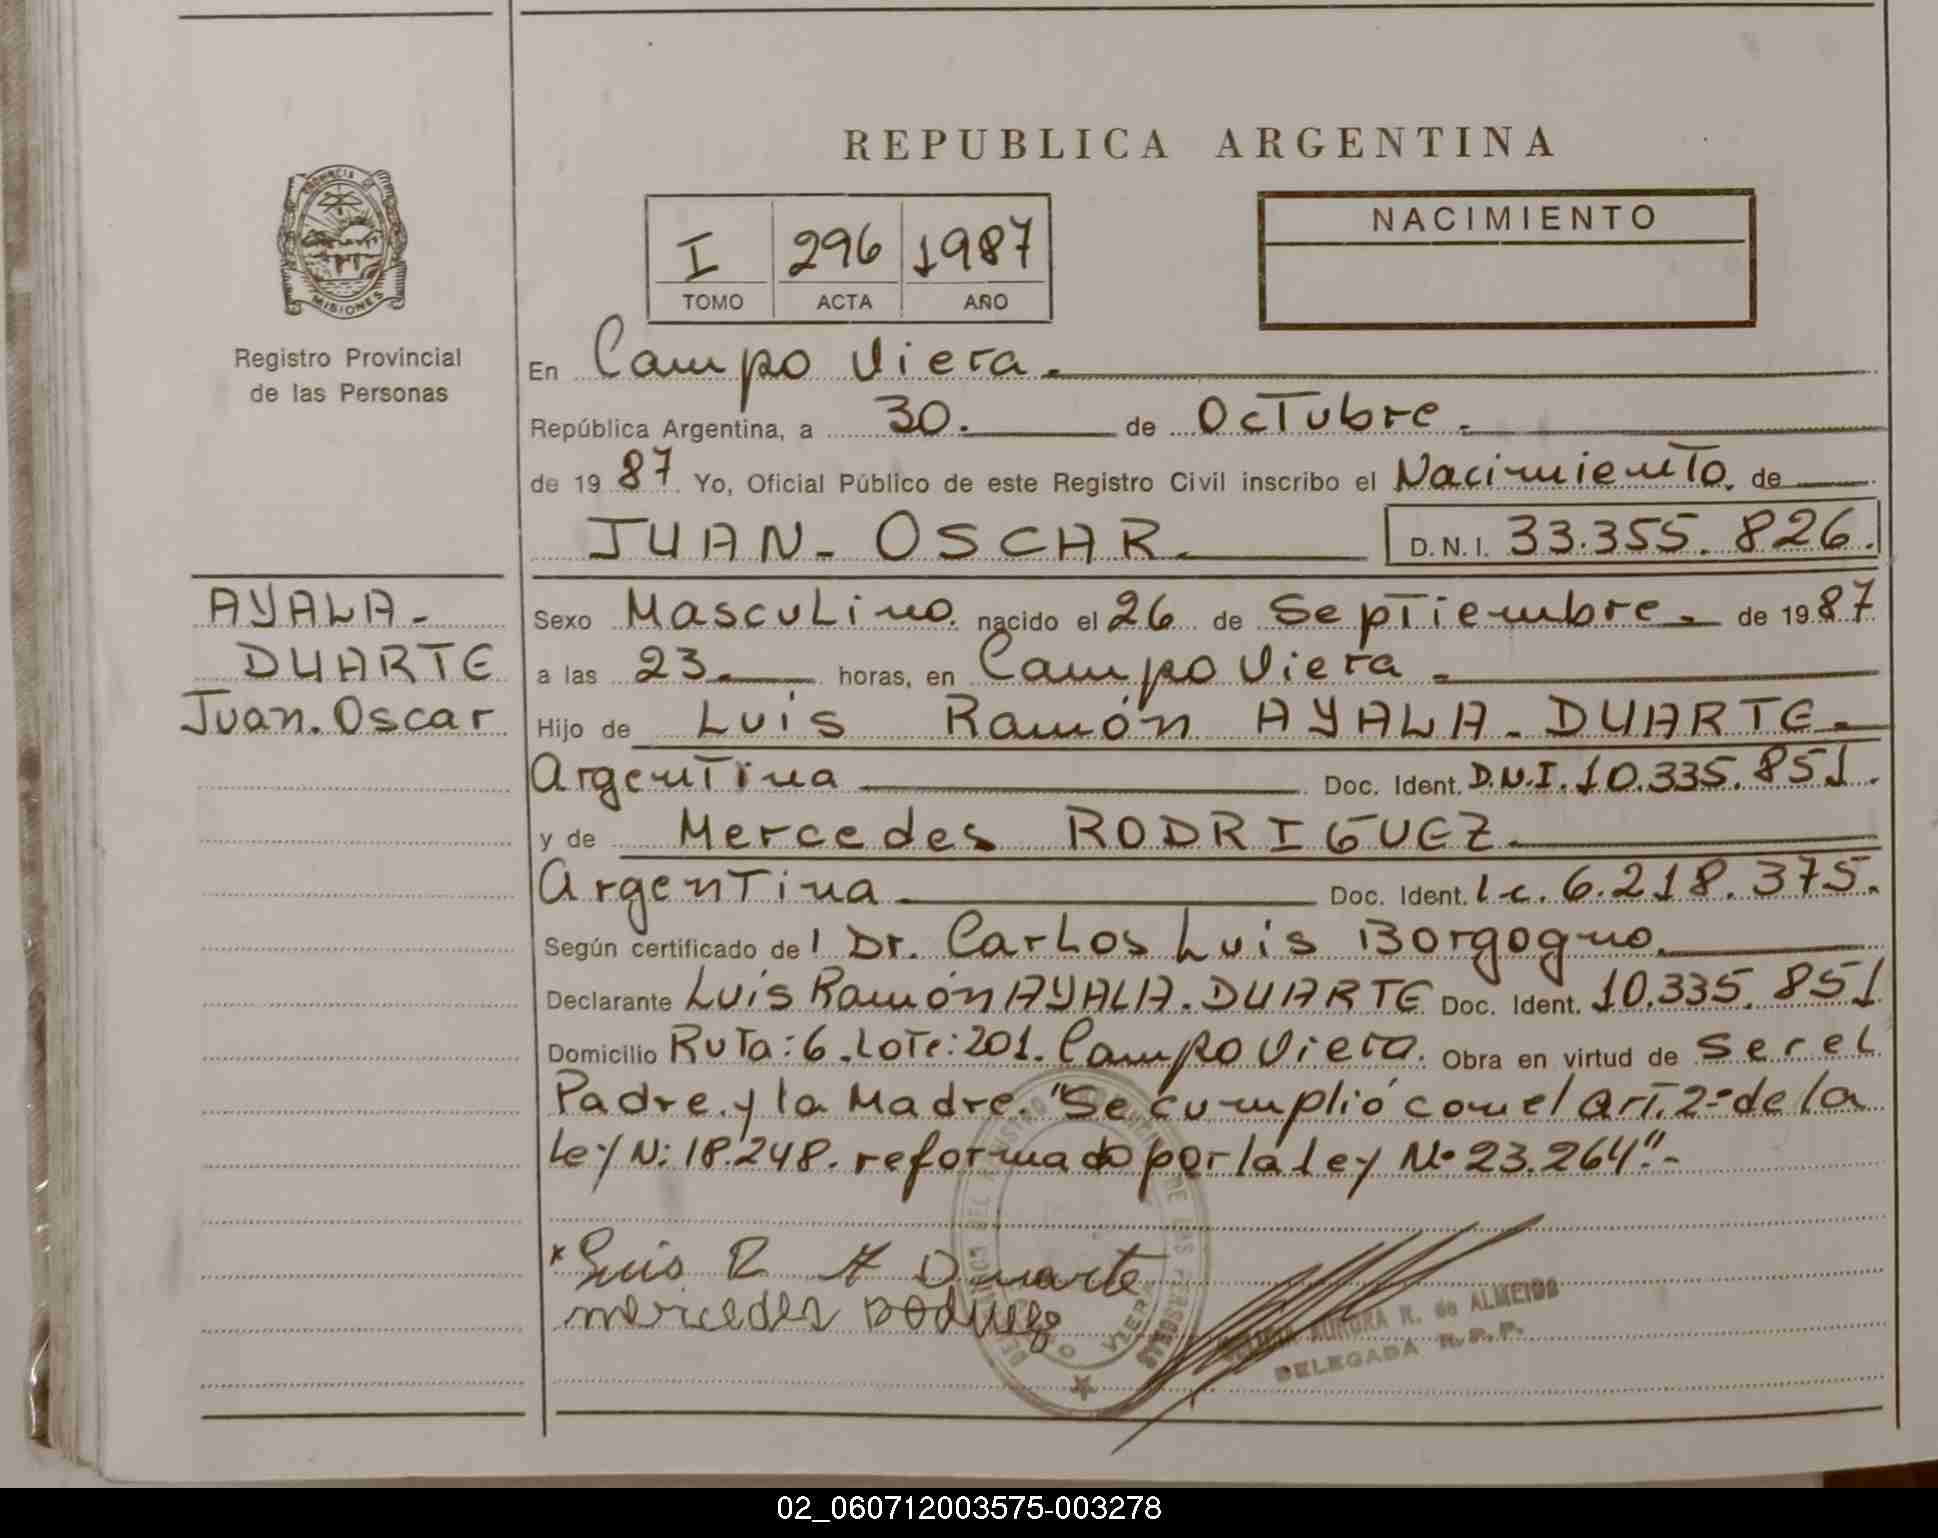 REPUBLICA ARGENTINA
PROVINCIA DE
MISIONES
Registro Provincial
de las Personas
I 296 1987
TOMO ACTA AÑO
NACIMIENTO
En Campo Viera.
República Argentina, a 30. de Octubre.
de 19 87 Yo, Oficial Público de este Registro Civil inscribo el Nacimiento. de
JUAN- OSCAR. D.N.I. 33.355.826.
AYALA-
DUARTE
Juan. Oscar
Sexo Masculino. nacido el 26 de Septiembre. de 19 87
a las 23. horas, en Campo Viera.
Hijo de Luis Ramón AYALA-DUARTE.
Argentina Doc. Ident. D.N.I. 10.335.851.
y de Mercedes RODRIGUEZ.
Argentina. Doc. Ident. L.C. 6.218.375.
Según certificado de l Dr. Carlos Luis Borgogno.
Declarante Luis Ramón AYALA-DUARTE Doc. Ident. 10.335.851
Domicilio Ruta: 6. Lote: 201. Campo Viera. Obra en virtud de Ser el
Padre. y la Madre. "Se cumplió con el art. 2º de la
Ley N: 18.248. reformado por la ley Nº 23.264".-
* Luis R A Duarte
mercedes Rodriguez
VIERA
AURORA R. de ALMEIDA
DELEGADA R.P.P.
02_060712003575-003278